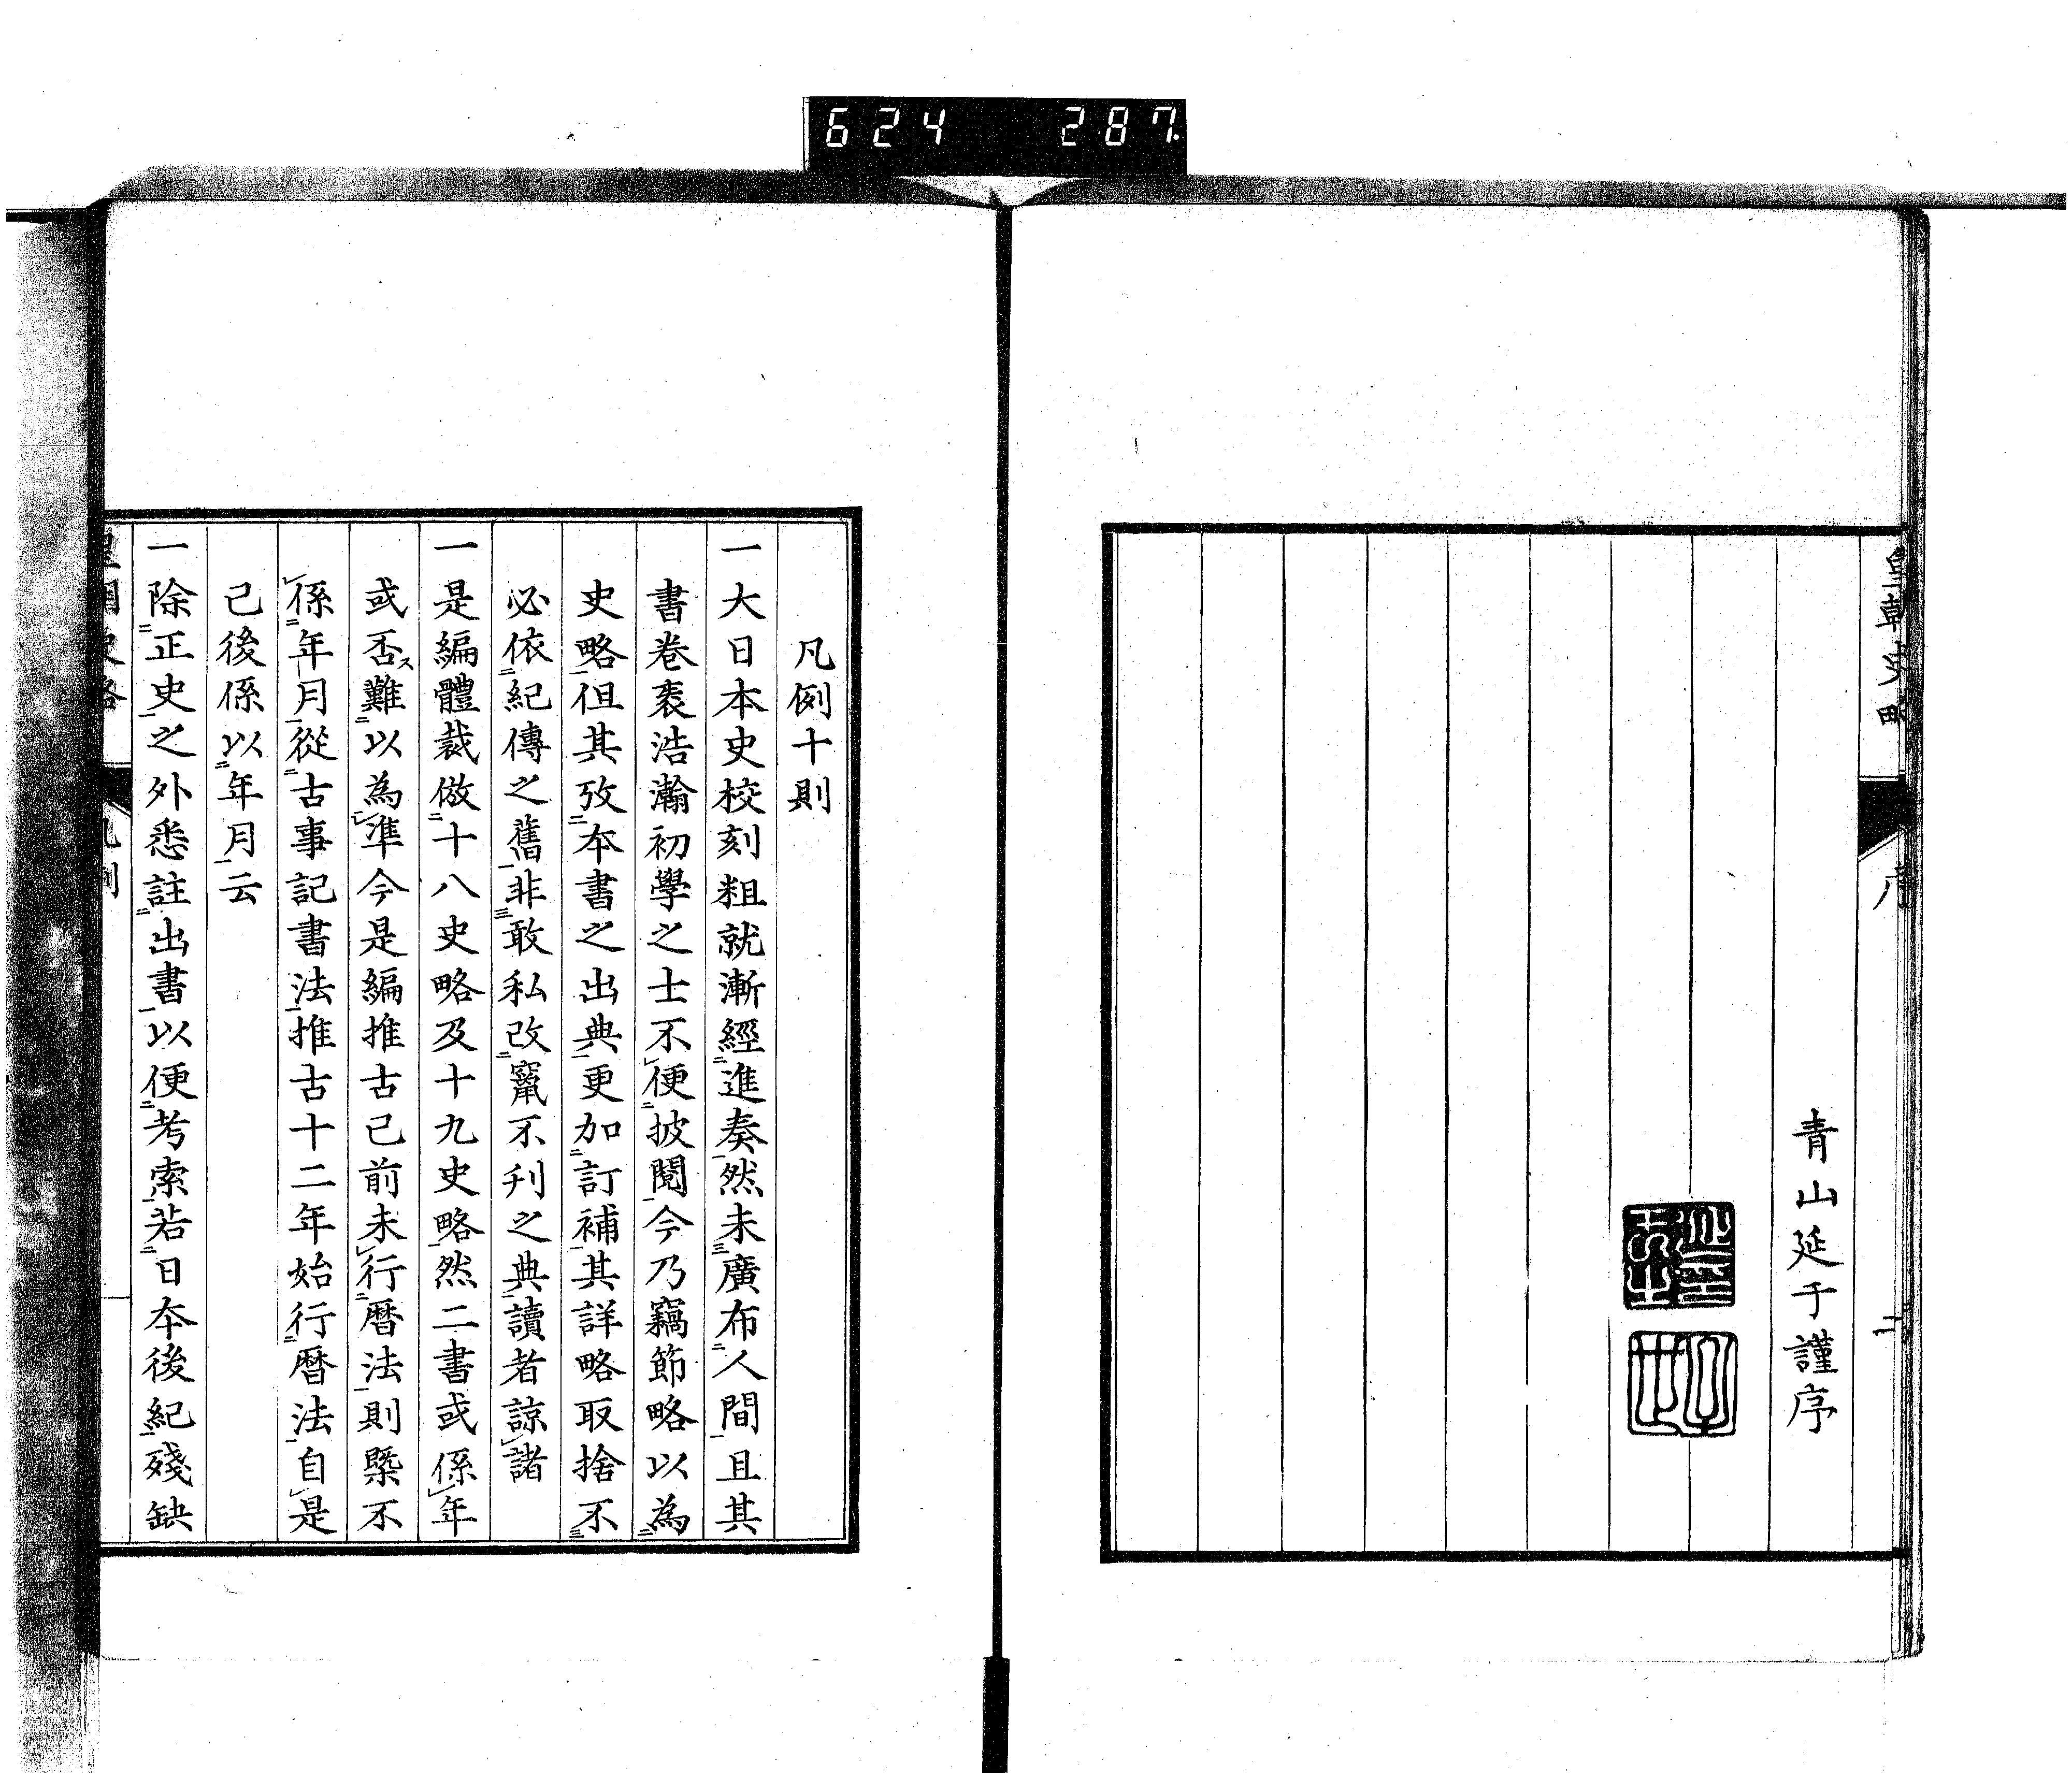 624 287
皇朝史略
序
二
青山延于謹序
凡例十則
一大日本史校刻粗就漸經進奏然未廣布人間且其
書卷袠浩瀚初學之士不便披閲今乃竊節略以為
史略但其攷本書之出典更加訂補其詳略取捨不
必依紀傳之舊非敢私改竄不刊之典讀者諒諸
一是編體裁倣十八史略及十九史略然二書或係年
或否難以為準今是編推古已前未行暦法則槩不
係年月從古事記書法推古十二年始行暦法自是
已後係以年月云
一除正史之外悉註出書以便考索若日本後紀殘缺
皇朝史略
凡例